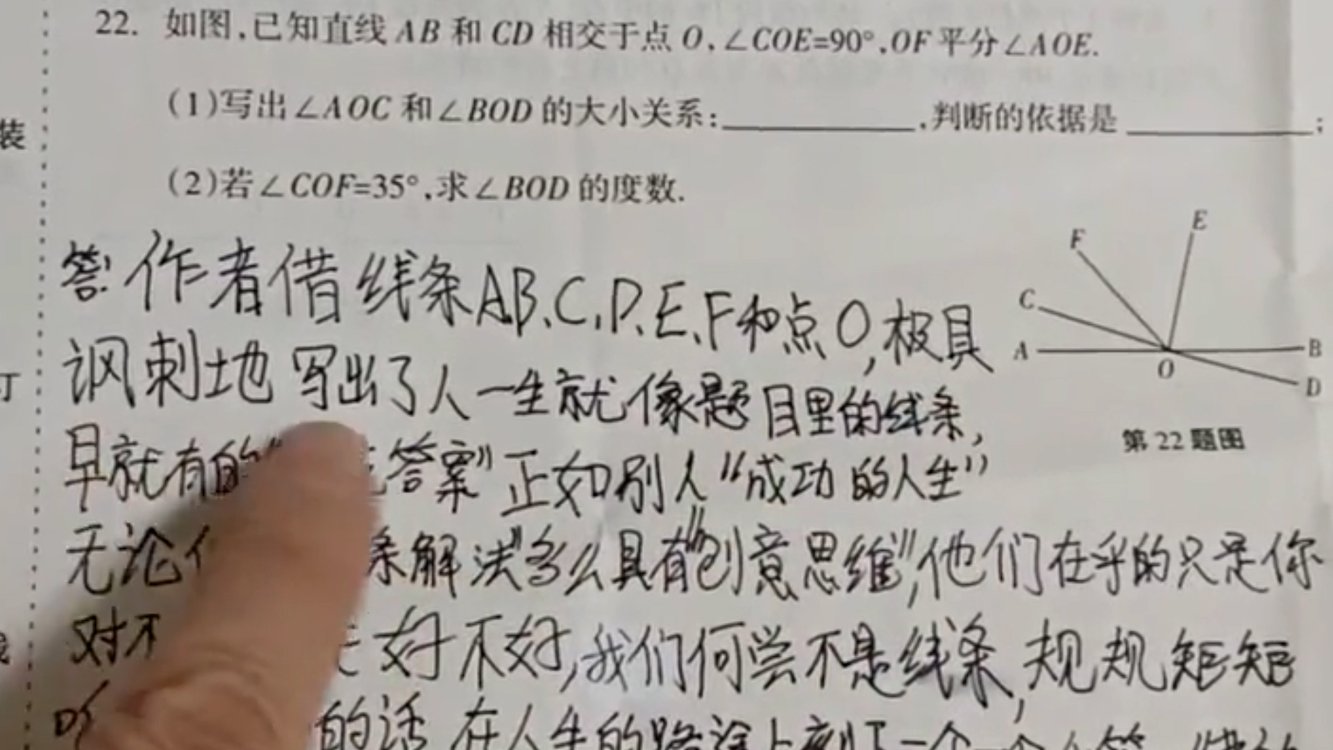 22. 如图,已知直线 AB 和 CD 相交于点 O,∠COE=90°,OF 平分∠AOE.
(1)写出∠AOC 和∠BOD 的大小关系:__________,判断的依据是__________;
(2)若∠COF=35°,求∠BOD 的度数.
装
订
线
答:作者借线条AB、C、D、E、F和点O,极具
讽刺地写出了人一生就像题目里的线条,
早就有的 答案"正如别人"成功的人生"
无论 条解法"多么具有"创意思维",他们在乎的只是你
对不 好不好,我们何尝不是线条,规规矩矩
听 的话,在人生的路途上刻下一个一个
F
E
C
A
O
B
D
第 22 题图